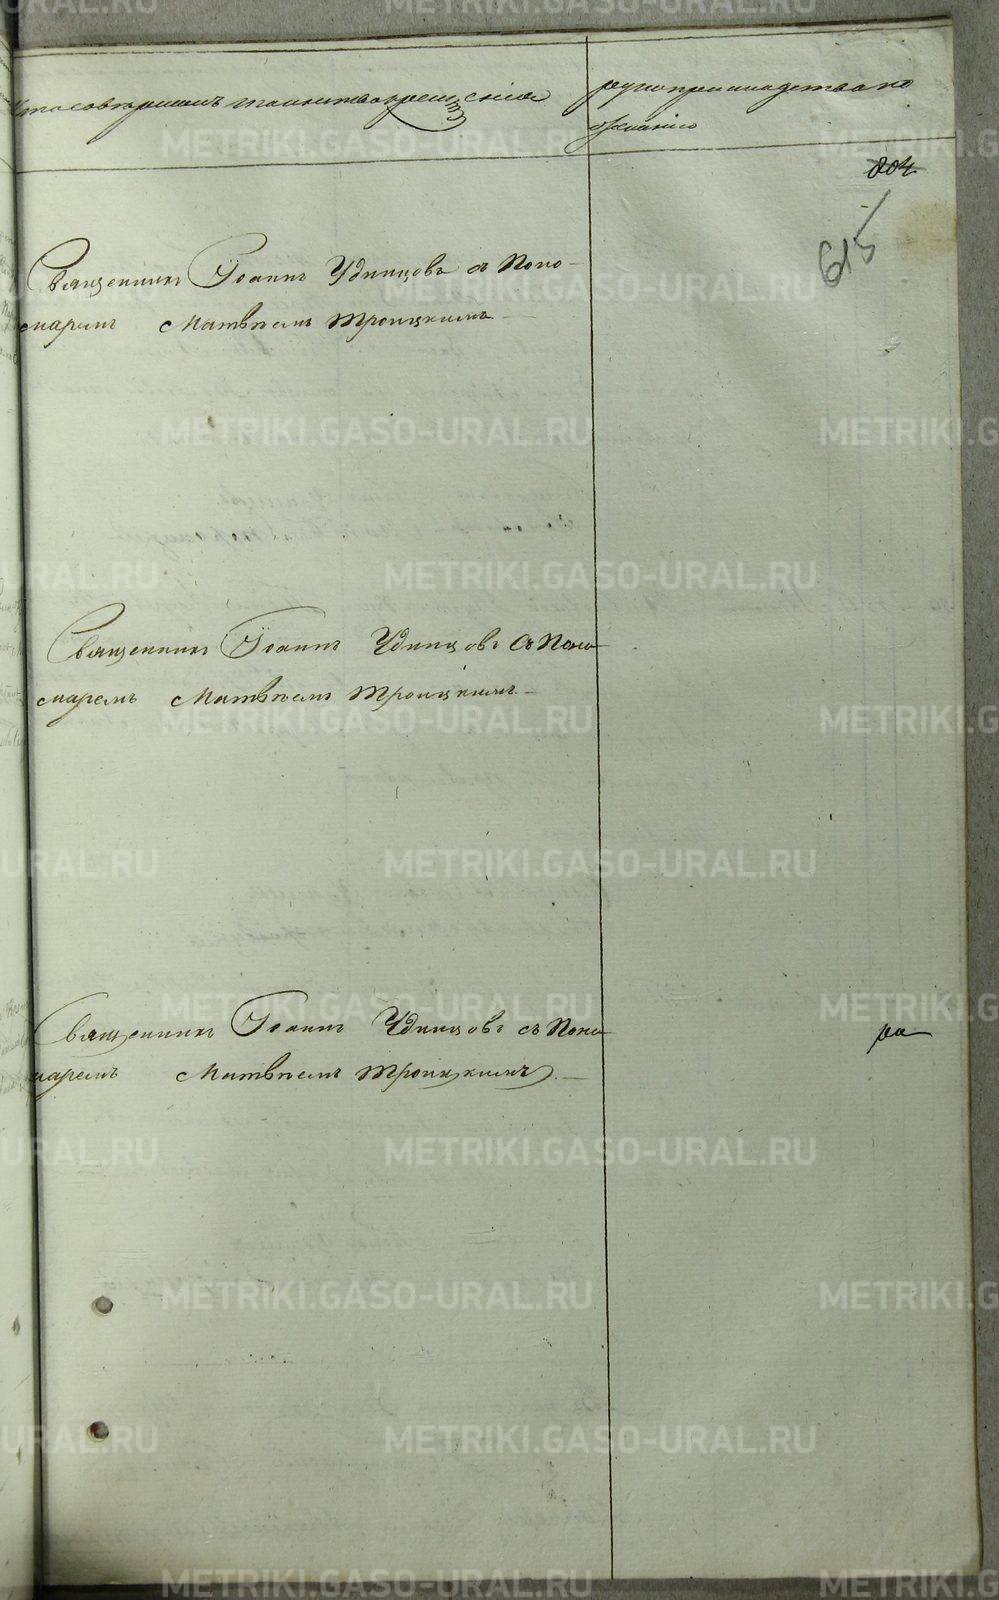 кто совершалъ таинство крещения
рукоприкладство по
желанію
804
615
Священникъ Іоаннъ Удинцовъ съ Поно-
маремъ Матвѣемъ Троицкимъ
Священникъ Іоаннъ Удинцовъ съ Поно-
маремъ Матвѣемъ Троицкимъ
Священникъ Іоаннъ Удинцовъ съ Поно-
маремъ Матвѣемъ Троицкимъ
METRIKI.GASO-URAL.RU